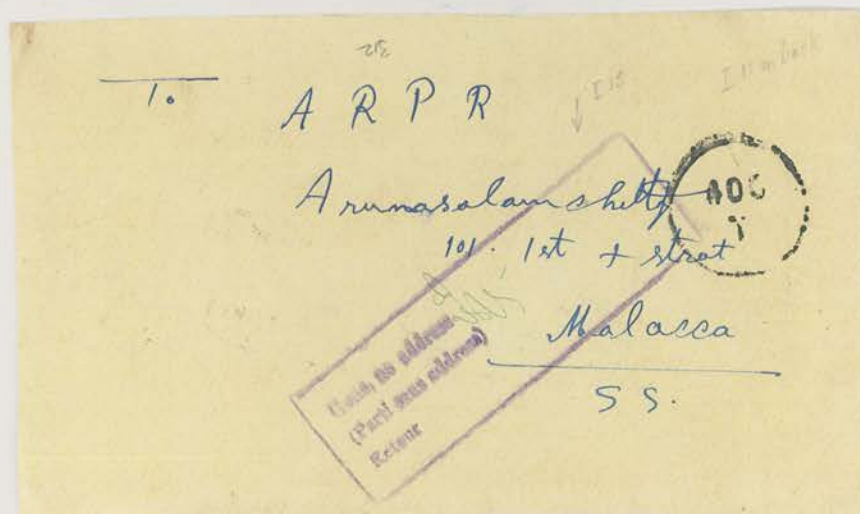 To
A R P R
Arunasalam chetty
101. 1st + strat
Malacca
S S.
Gone, no address
(Parti sans address)
Retour
I 11 on back